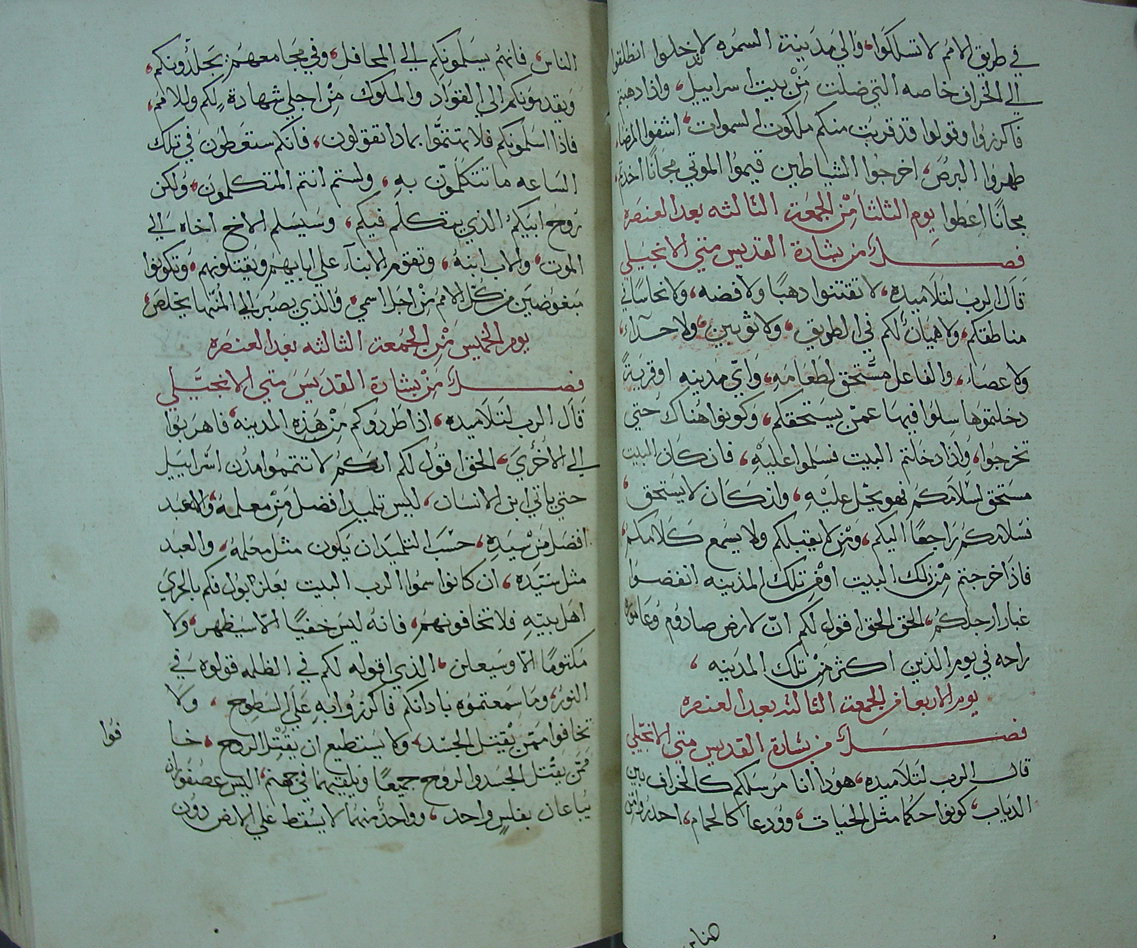 في طريق الامم لا تسلكوا والى مدينة السمره لا تدخلوا انطلقوا
الى الخراف خاصه التي ضلت من بيت اسراييل واذا دهبتم
فاكرزوا وقولوا قد قربت منكم ملكوت السموات اشفوا المرضا
طهروا البرص اخرجوا الشياطين قيموا الموتي مجانا اخدتم
مجانا اعطوا يوم الثلثا من الجمعة الثالثه بعد العنصره
فصل من بشارة القديس متي الانجيلي
قال الرب لتلاميده لا تقتنوا دهبا ولا فضه ولا نحاسا في
مناطقكم ولا هميان لكم في الطريق ولا ثوبين ولا حداء
ولا عصاء والفاعل مستحق لطعامه واي مدينه او قرية
دخلتموها سلوا فيها عمن يستحقكم وكونوا هناك حتي
تخرجوا واذا دخلتم البيت فسلموا عليه فان كان البيت
مستحق لسلامكم فهو يحل عليه وان كان لا يستحق
فسلامكم راجعا اليكم ومن لا يقبلكم ولا يسمع كلامكم
فاذا خرجتم من ذلك البيت او من تلك المدينه انفضوا
غبار ارجلكم الحق الحق اقول لكم ان لارض صادوم وعاموره
راحه في يوم الدين اكثر من تلك المدينه
يوم الاربعا من الجمعة الثالثه بعد العنصره
فصل من بشارة القديس متي الانجيلي
قال الرب لتلاميده هودا انا مرسلكم كالخراف بين
الدياب كونوا حكما مثل الحيات وودعا كالحمام احدروا من
الناس فانهم يسلمونكم الى المحافل وفي مجامعهم يجلدونكم
ويقدمونكم الى القواد والملوك من اجلي شهادة لكم وللامم
فاذا اسلموكم فلا تهتموا بمادا تقولون فانكم ستعطون في تلك
الساعه ما تتكلمون به ولستم انتم المتكلمون ولكن
روح ابيكم الدي يتكلم فيكم وسيسلم الاخ اخاه الى
الموت والاب ابنه وتقوم الابناء علي ابايهم ويقتلونهم وتكونوا
مبغوضين من كل الامم من اجل اسمي والذي يصبر الى المنتها يخلص
يوم الخميس من الجمعة الثالثه بعد العنصره
فصل من بشارة القديس متي الانجيلي
قال الرب لتلاميده اذا طردوكم من هذه المدينه فاهربوا
الى الاخري الحق اقول لكم انكم لا تتمموا مدن اسراييل
حتي ياتي ابن الانسان ليس تلميد افضل من معلمه ولا عبد
افضل من سيده حسب التلميد ان يكون مثل معلمه والعبد
مثل سيده ان كانوا سموا الرب البيت بعلزبول فكم بالحري
اهل بيته فلا تخافونهم فانه ليس خفيا الا سيظهر ولا
مكتوما الا وسيعلن الدي اقوله لكم في الظلمه قولوه في
النور وما سمعتموه بادانكم فاكرزوا به على السطوح ولا
تخافوا ممن يقتل الجسد ولا يستطيع ان يقتل الروح خا
فوا
ممن يقتل الجسد والروح جميعا ويلقيهما في جهنم اليس عصفوران
يباعان بفلس واحد وواحد منهما لا يسقط علي الارض دون